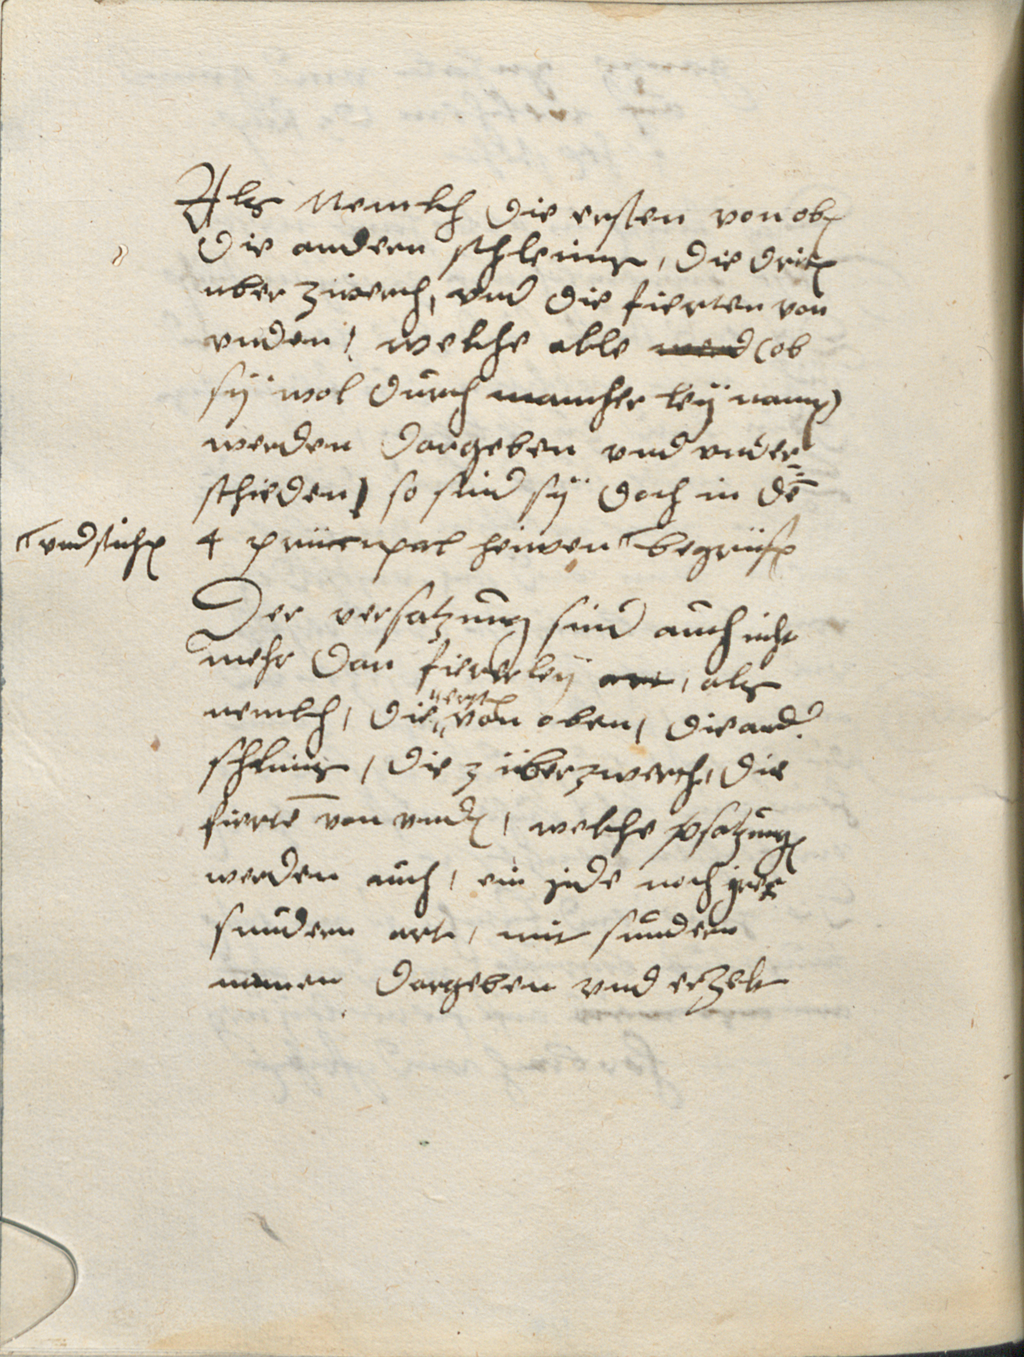 Als Nemlich die ersten von oben
die andern schlims, die driten
uber zwerch, vnd die fierten von
vnden, welche alle werd (ob
sÿ wol durch mancherleÿ namen)
werden dargeben vnd vnder=
schieden) so sind sÿ doch in dē
vnd stichen
4 principal heüwen begriffen
Der versatzung sind auch nicht
mehr dan fiererleÿ art, als
nemlich, die erst von oben, die ander
schlims, die 3 überzwerch, die
fiertē von vnden, welche versatzungen
werden auch, ein jede noch irer
sundern art, mit sundern
namen dargeben vnd erzelt